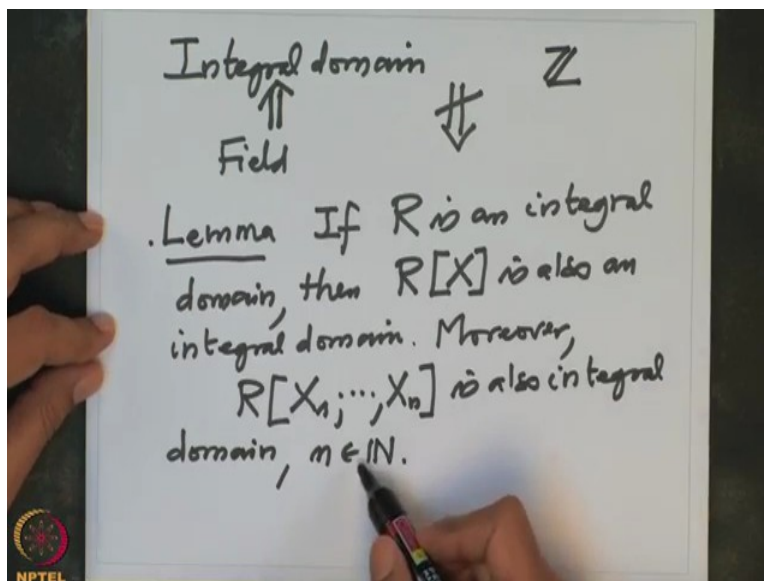 Integral domain ℤ
⇑ ⇓̸
Field
. Lemma If R is an integral
domain, then R[X] is also an
integral domain. Moreover,
R[X₁,...,Xₙ] is also integral
domain, n ∈ ℕ.
NPTEL